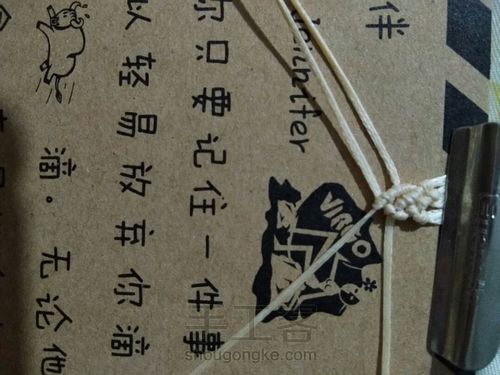 伴
你只要记住一件事
以轻易放弃你滴
滴。无论他
VIRGO
手工客
shougongke.com